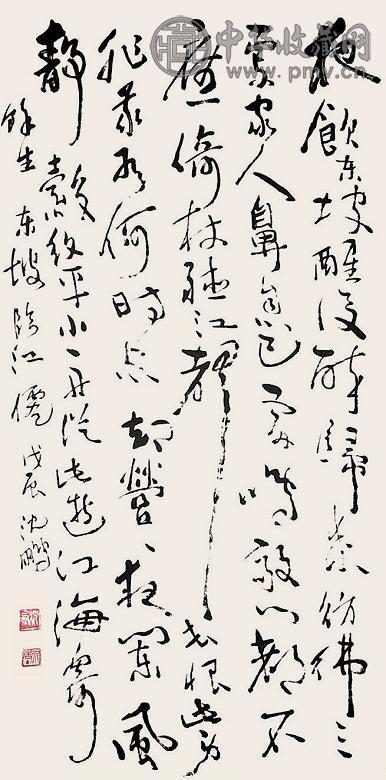 中华收藏网
www.pmv.cn
夜飲东坡醒復醉歸来彷彿三
更家人鼻息已雷鸣敲门都不
應倚杖聽江聲长恨此身
非我有何时忘却營々夜阑風
静縠纹平小舟从此逝江海寄
餘生 东坡临江僊 戊辰沈鹏